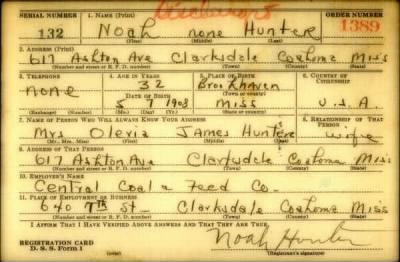 SERIAL NUMBER 1. NAME (Print) ORDER NUMBER
132 Noah none Hunter 1389
(First) (Middle) (Last)
2. ADDRESS (Print)
617 Ashton Ave Clarksdale Coahoma Miss
(Number and street or R. F. D. number) (Town) (County) (State)
3. TELEPHONE 4. AGE IN YEARS 5. PLACE OF BIRTH 6. COUNTRY OF CITIZENSHIP
32 Brookhaven
none DATE OF BIRTH
5 7 1908 Miss U.S.A.
(Exchange) (Number) (Mo.) (Day) (Yr.) (State or country)
7. NAME OF PERSON WHO WILL ALWAYS KNOW YOUR ADDRESS 8. RELATIONSHIP OF THAT PERSON
Mrs Olevia James Hunter wife
(Mr., Mrs., Miss) (First) (Middle) (Last)
9. ADDRESS OF THAT PERSON
617 Ashton Ave Clarksdale Coahoma Miss
(Number and street or R. F. D. number) (Town) (County) (State)
10. EMPLOYER'S NAME
Central Coal & Feed Co.
11. PLACE OF EMPLOYMENT OR BUSINESS
640 7th St Clarksdale Coahoma Miss
(Number and street or R. F. D. number) (Town) (County) (State)
I AFFIRM THAT I HAVE VERIFIED ABOVE ANSWERS AND THAT THEY ARE TRUE.
REGISTRATION CARD
D. S. S. Form 1 Noah Hunter